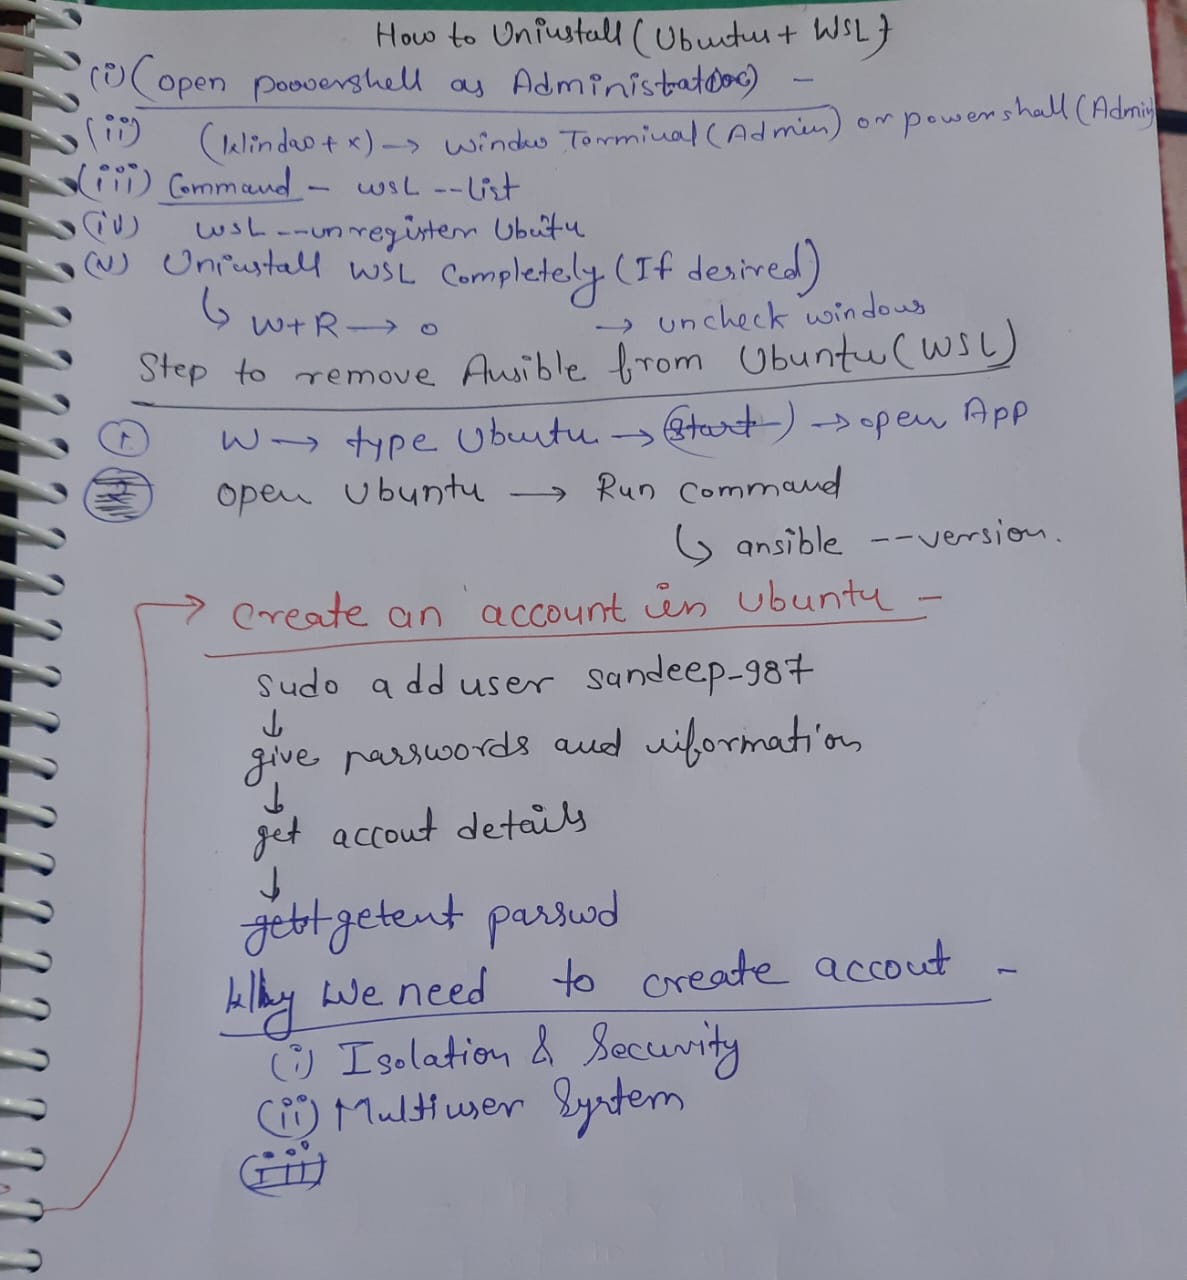 How to Uninstall (Ubuntu + WSL)
(i) (open powershell as Administrator) -
(ii) (Window + x) → Window Terminal (Admin) or powershall (Admin)
(iii) Command - WSL --list
(iv) WSL --unregister Ubutu
(v) Uninstall WSL Completely (If desired)
↳ W+R → o → uncheck windows
Step to remove Ansible from Ubuntu (WSL)
① W → type Ubuntu → (start) → open App
open Ubuntu → Run Command
↳ ansible --version.
→ create an account in Ubuntu -
sudo adduser sandeep-987
↓
give passwords and information
↓
get accout details
↓
getent passwd
Why we need to create accout -
(i) Isolation & Security
(ii) Multiuser System
(iii)